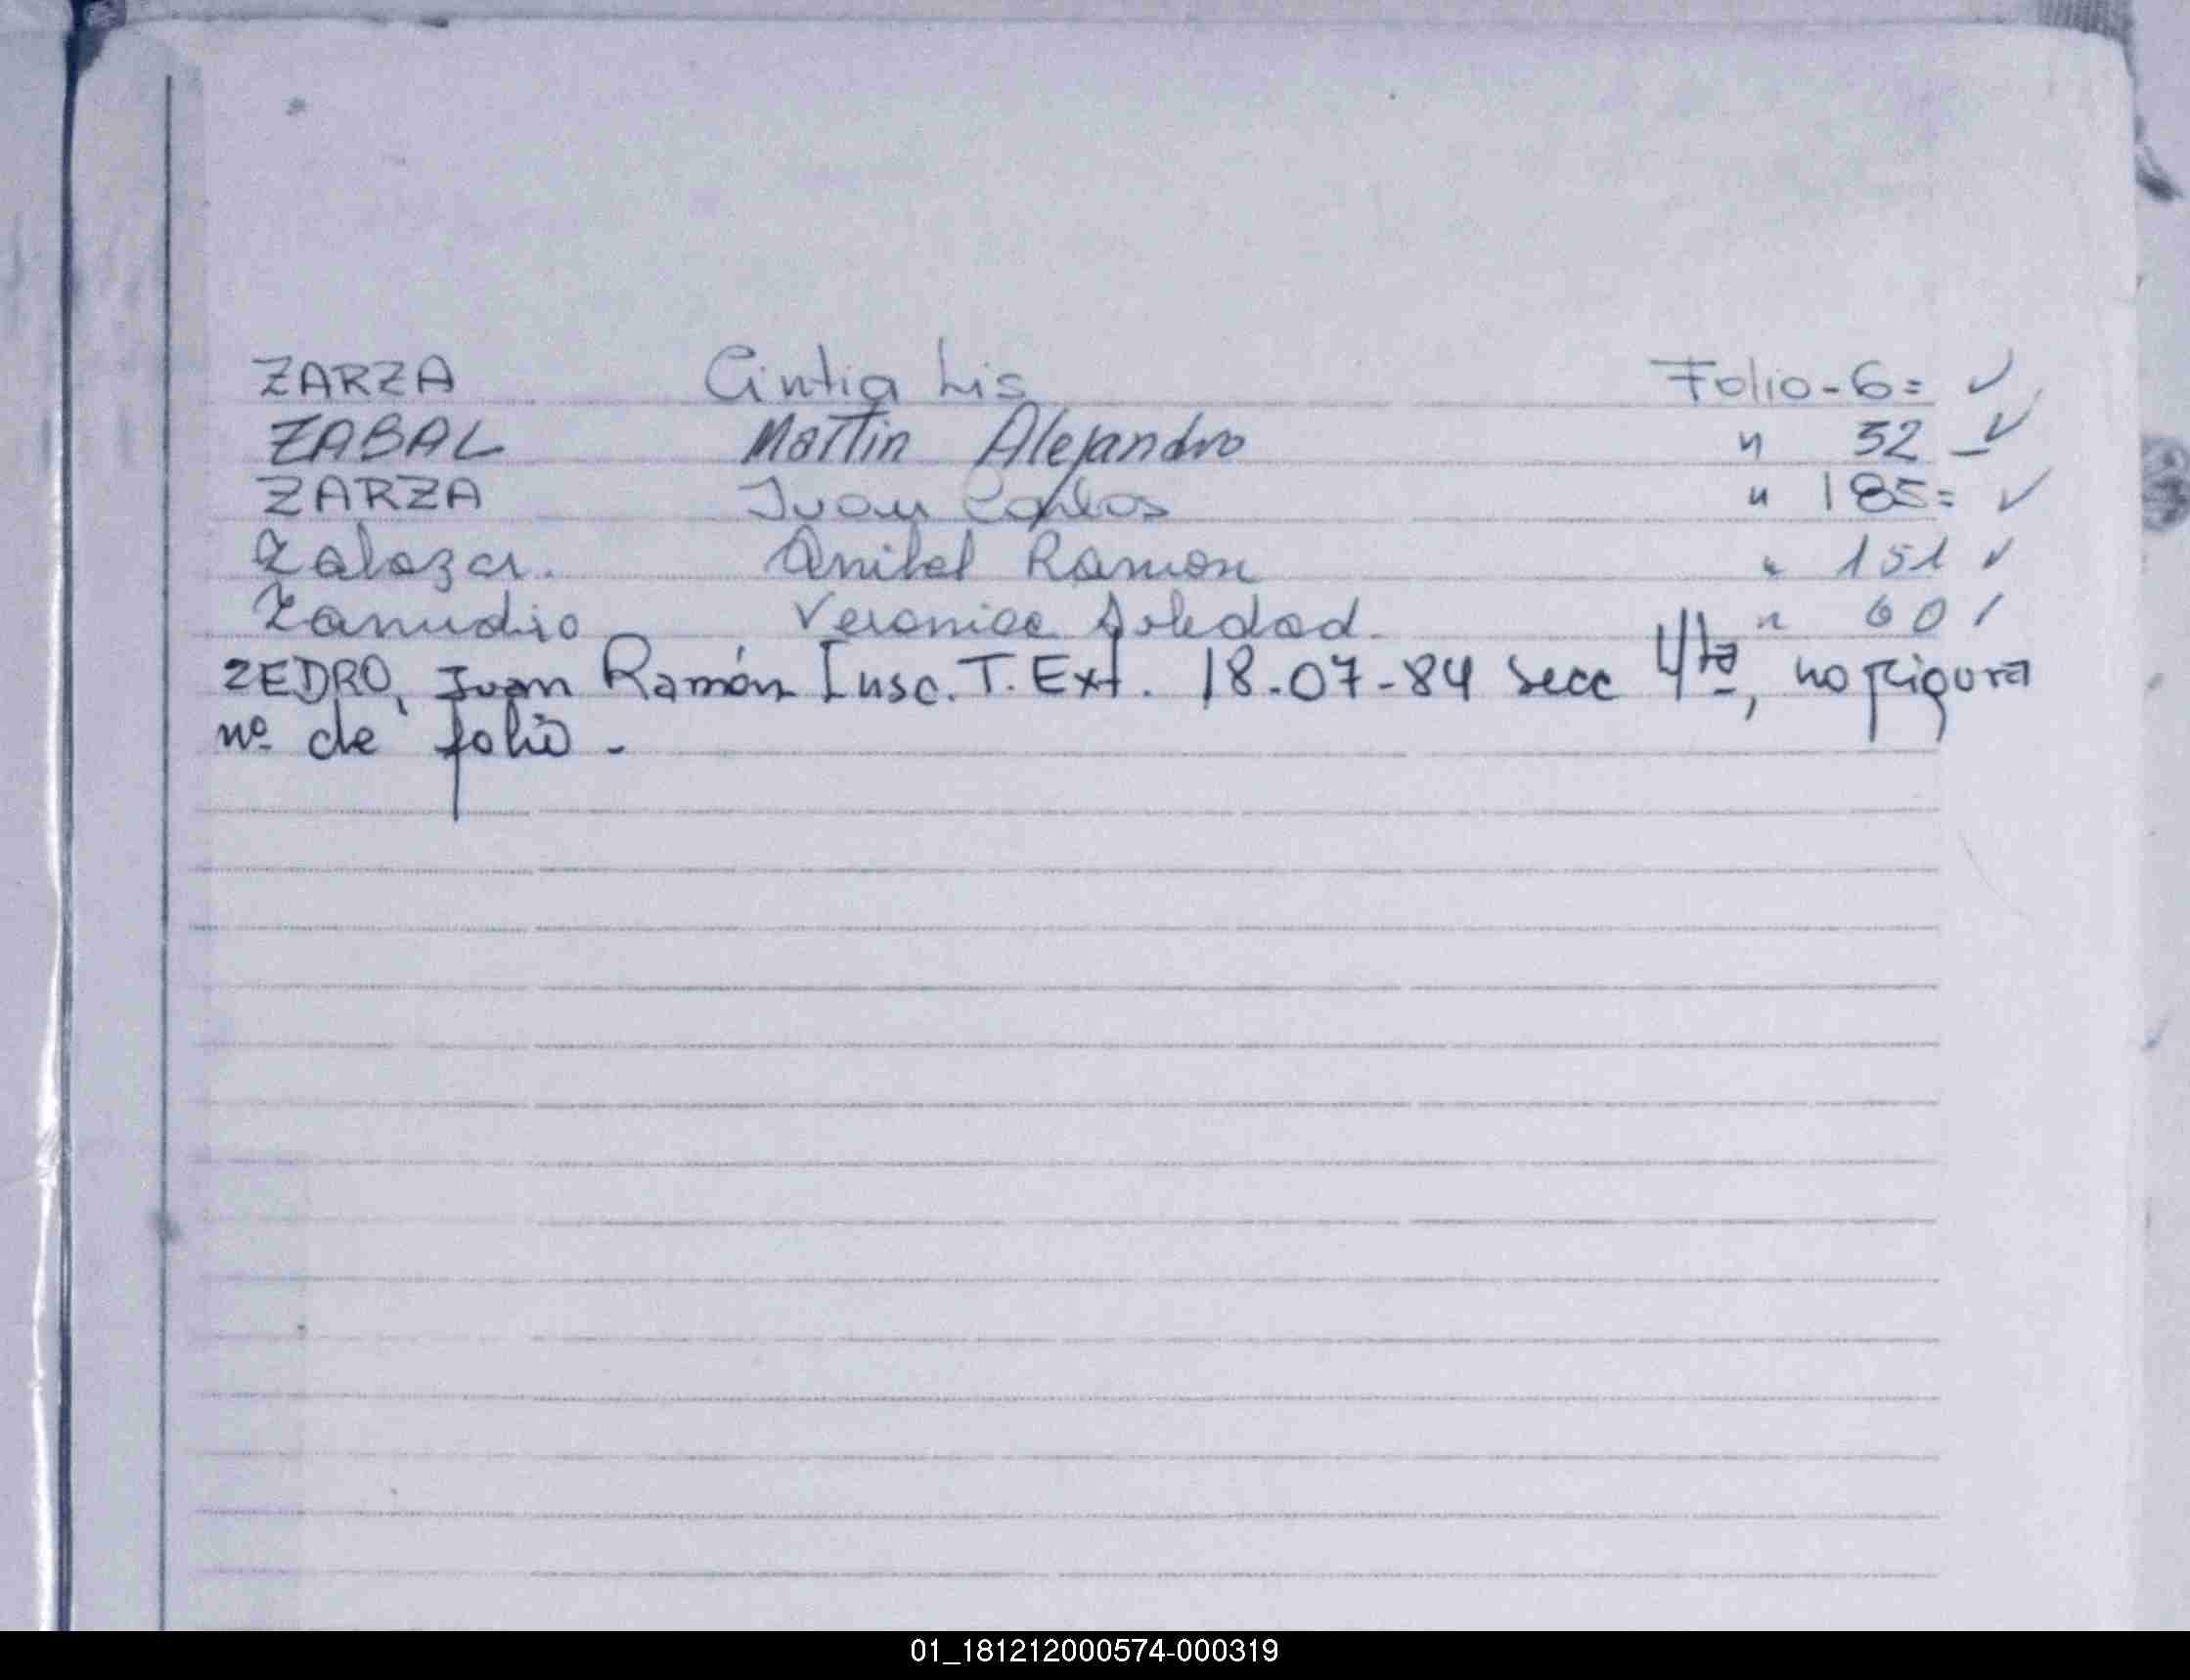 ZARZA Cintia Lis Folio - 6 = ✓
ZABAL Martin Alejandro " 52 - ✓
ZARZA Juan Carlos " 185 = ✓
Zalazar. Anibal Ramon " 151 ✓
Zamudio Veronica Soledad. " 60 /
ZEDRO, Juan Ramón Insc. T. Ext. 18-07-84 secc 4ta, no figura
nº de folio -
01_181212000574-000319